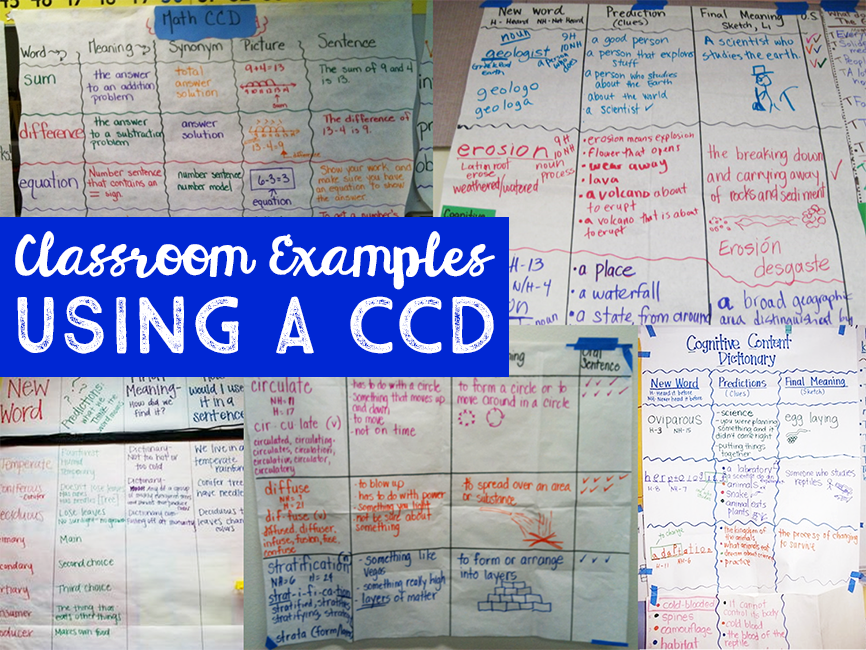 Math CCD
Word Meaning Synonym Picture Sentence
sum
the answer
to an addition
problem
total
answer
solution
9+4=13
sum
The sum of 9 and 4
is 13.
difference
the answer
to a subtraction
problem
answer
solution
13-4=9
The difference of
13-4 is 9.
equation
Number sentence
that contains an
= sign.
number sentence
number model
6-3=3
equation
Show your work and
make sure you have
an equation to show
the answer.
New Word
H-Heard NH-Not Heard
Prediction
(Clues)
Final Meaning
Sketch, L1
O.S
noun
geologist
9H
10NH
earth
geologo
geologa
a good person
a person that explores
stuff
a person who studies
about the Earth
about the world
a scientist ✓
A scientist who
studies the earth.
erosion
9H
10NH
Latin root
erose
noun
process
weathered/watered
• erosion means explosion
• flower that opens
• wear away
• lava
• a volcano about
to erupt
• a volcano that is about
to erupt
the breaking down
and carrying away
of rocks and sediment
Erosión
desgaste
Cognitive
H-13
N/H-4
noun
• a place
• a waterfall
• a state from around
a broad geographic
area distinguished by
Classroom Examples
USING A CCD
New
Word
Predictions
what we
think the
word means
Final
Meaning-
How did we
find it?
would I use
it in a
sentence
Temperate
Dictionary-
Not too hot or
too cold
We live in a
temperate
Coniferous
Dictionary-
Conifer tree
have needle
Deciduous
Lose leaves
Deciduous t
leaves chan
Main
Second choice
Third choice
The thing that
eats other things
Makes own food
Sentence
circulate
NH-11
H-17
cir-cu late (v)
circulated, circulating
circulates, circulation,
circulative, circulator,
circulatory
has to do with a circle
something that moves up
and down
to move
- not on time
to form a circle or to
move around in a circle
diffuse
H-21
dif-fuse (v)
diffused, diffuser,
infuse, fusion, fee,
confuse
- to blow up
has to do with power
- something you light
not be sure about
something
to spread over an area
or substance
stratification (n)
NH=6 H=24
strat-i-fi-ca-tion
strata (form/
- something like
Vegas
- something really high
- layers of matter
to form or arrange
into layers
Cognitive Content
Dictionary
New Word
H-Heard it before
NH-Never heard it before
Predictions
(Clues)
Final Meaning
(Sketch)
oviparous
H-3 NH-15
- science
- you were planning
something and it
didn't come right
- putting things
together
egg laying
H-8 NH-7
• a laboratory
• animals
• snake
• animal eats
plants
someone who studies
reptiles
to change
adaptation
H-11 NH-6
• the kingdom of
the animals
• what animals eat
• practice
the process of changing
to survive
• cold-blooded
• spines
• camouflage
• habitat
• it cannot
control its body
• cold blood
• the blood of the
reptile